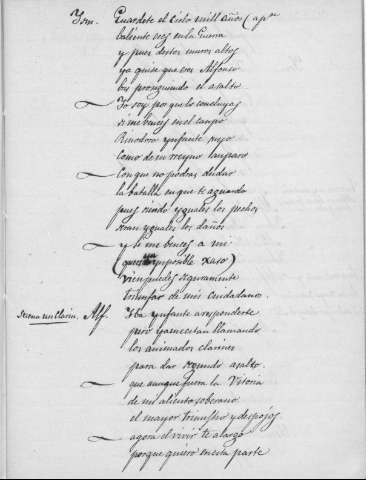 Ism. Guardete el Cielo mill años (apte
baliente eres en la Guerra
y pues destos muros altos
ya quise que eres Alfonso
boy prosiguiendo el asalto
Yo soy porque lo concluyas
si me bences en el campo
Rinodora ynfante suyo
Como de su reyno amparo
Con que no podras dudar
la batalla en que te aguardo
pues siendo yguales los pechos
seran yguales los daños
y si me bences a mi
(que es imposible caso)
bien puedes seguramente
triunfar de mis ciudadanos.
Suena un Clarin. Alf. Yba ynfante a responderte
pero ya necitan llamando
los animados clarines
para dar segundo asalto.
que aunque fuera la Vitoria
de mi aliento soberano
el mayor triumfo y despojos
agora el vivir te alargo
porque quiero en esta parte